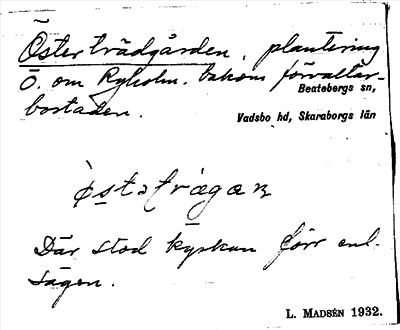 Öster trädgården, plantering
Ö. om Ryholm. bakom förvaltar-
Beatebergs sn,
bostaden.
Vadsbo hd, Skaraborgs län
Där stod kyrkan förr enl.
sägen.
L. MADSÉN 1932.